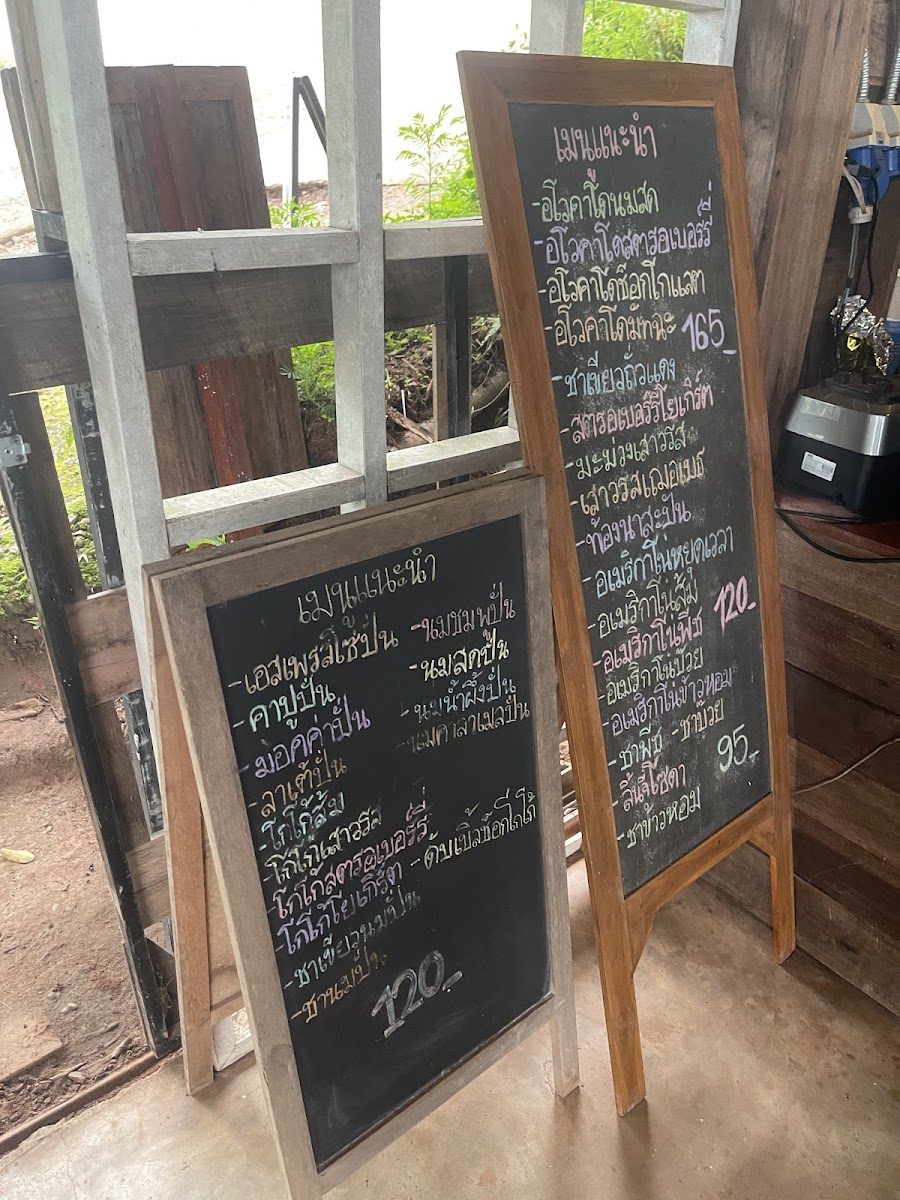 เมนูแนะนำ
-เอสเพรสโซ่ปั่น
-คาปูปั่น
-ม่อคค่าปั่น
-ลาเต้ปั่น
-โกโก้ส้ม
-โกโก้เสาวรส
-โกโก้สตรอเบอร์รี่
-โกโก้โยเกิร์ต
-ชาเขียวนมปั่น
-ชานมปั่น
-นมชมพูปั่น
-นมสดปั่น
-นมน้ำผึ้งปั่น
-นมคาลาเมลปั่น
-ดับเบิ้ลช็อกโกโก้
120.-
เมนูแนะนำ
-อโวคาโดนมสด
-อโวคาโดสตรอเบอร์รี่
-อโวคาโดช็อกโกแลต
-อโวคาโดมัทฉะ 165.-
-ชาเขียวถั่วแดง
-สตรอเบอร์รีโยเกิร์ต
-มะม่วงเสาวรส
-ท้องนาสะปัน
-อเมริกาโน่หยุดเวลา
-อเมริกาโน่ส้ม 120.-
-อเมริกาโน่พีช
-อเมริกาโน่บ๊วย
-อเมริกาโน่ข้าวหอม
-ชาพีช -ชาบ๊วย
-ลิ้นจี่โซดา 95.-
-ชาข้าวหอม